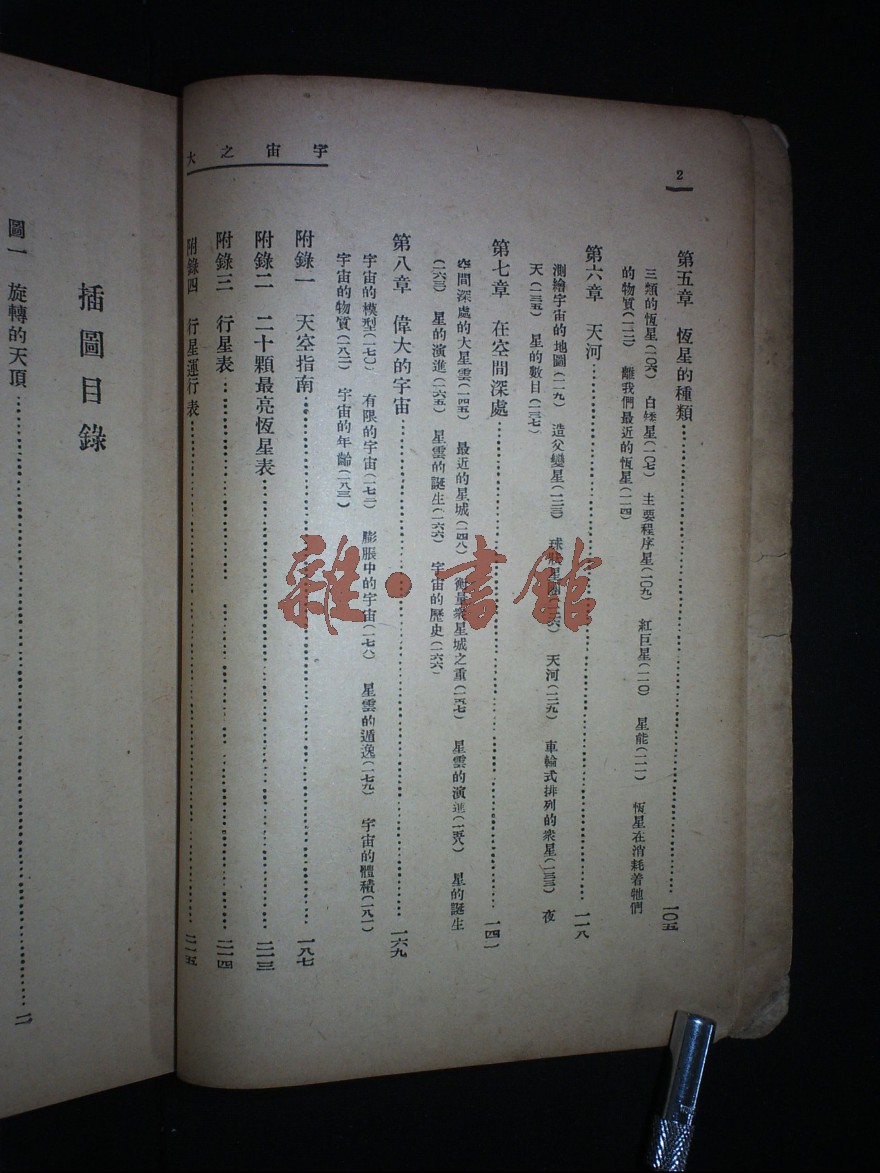 宇宙之大
2
第五章　恆星的種類……一〇五
三類的恆星(一〇六)　白矮星(一〇七)　主要程序星(一〇九)　紅巨星(一一〇)　星能(一一一)　恆星在消耗着牠們
的物質(一一二)　離我們最近的恆星(一一四)
第六章　天河……一一八
測繪宇宙的地圖(一一九)　造父變星(一二三)　球狀星團　天河(一二九)　車輪式排列的衆星(一三三)　夜
天(一三五)　星的數目(一三七)
第七章　在空間深處……一四一
空間深處的大星雲(一四五)　最近的星城(一四八)　衡量衆星城之重(一五七)　星雲的演進(一五八)　星的誕生
(一六三)　星的演進(一六五)　星雲的誕生(一六六)　宇宙的歷史(一六六)
第八章　偉大的宇宙……一六九
宇宙的模型(一七〇)　有限的宇宙(一七二)　膨脹中的宇宙(一七八)　星雲的遁逸(一七九)　宇宙的體積(一八一)
宇宙的物質(一八二)　宇宙的年齡(一八三)
附錄一　天空指南……一八七
附錄二　二十顆最亮恆星表……二一三
附錄三　行星表……二一四
附錄四　行星運行表……二一五
插圖目錄
圖一　旋轉的天頂……二
雜·書館